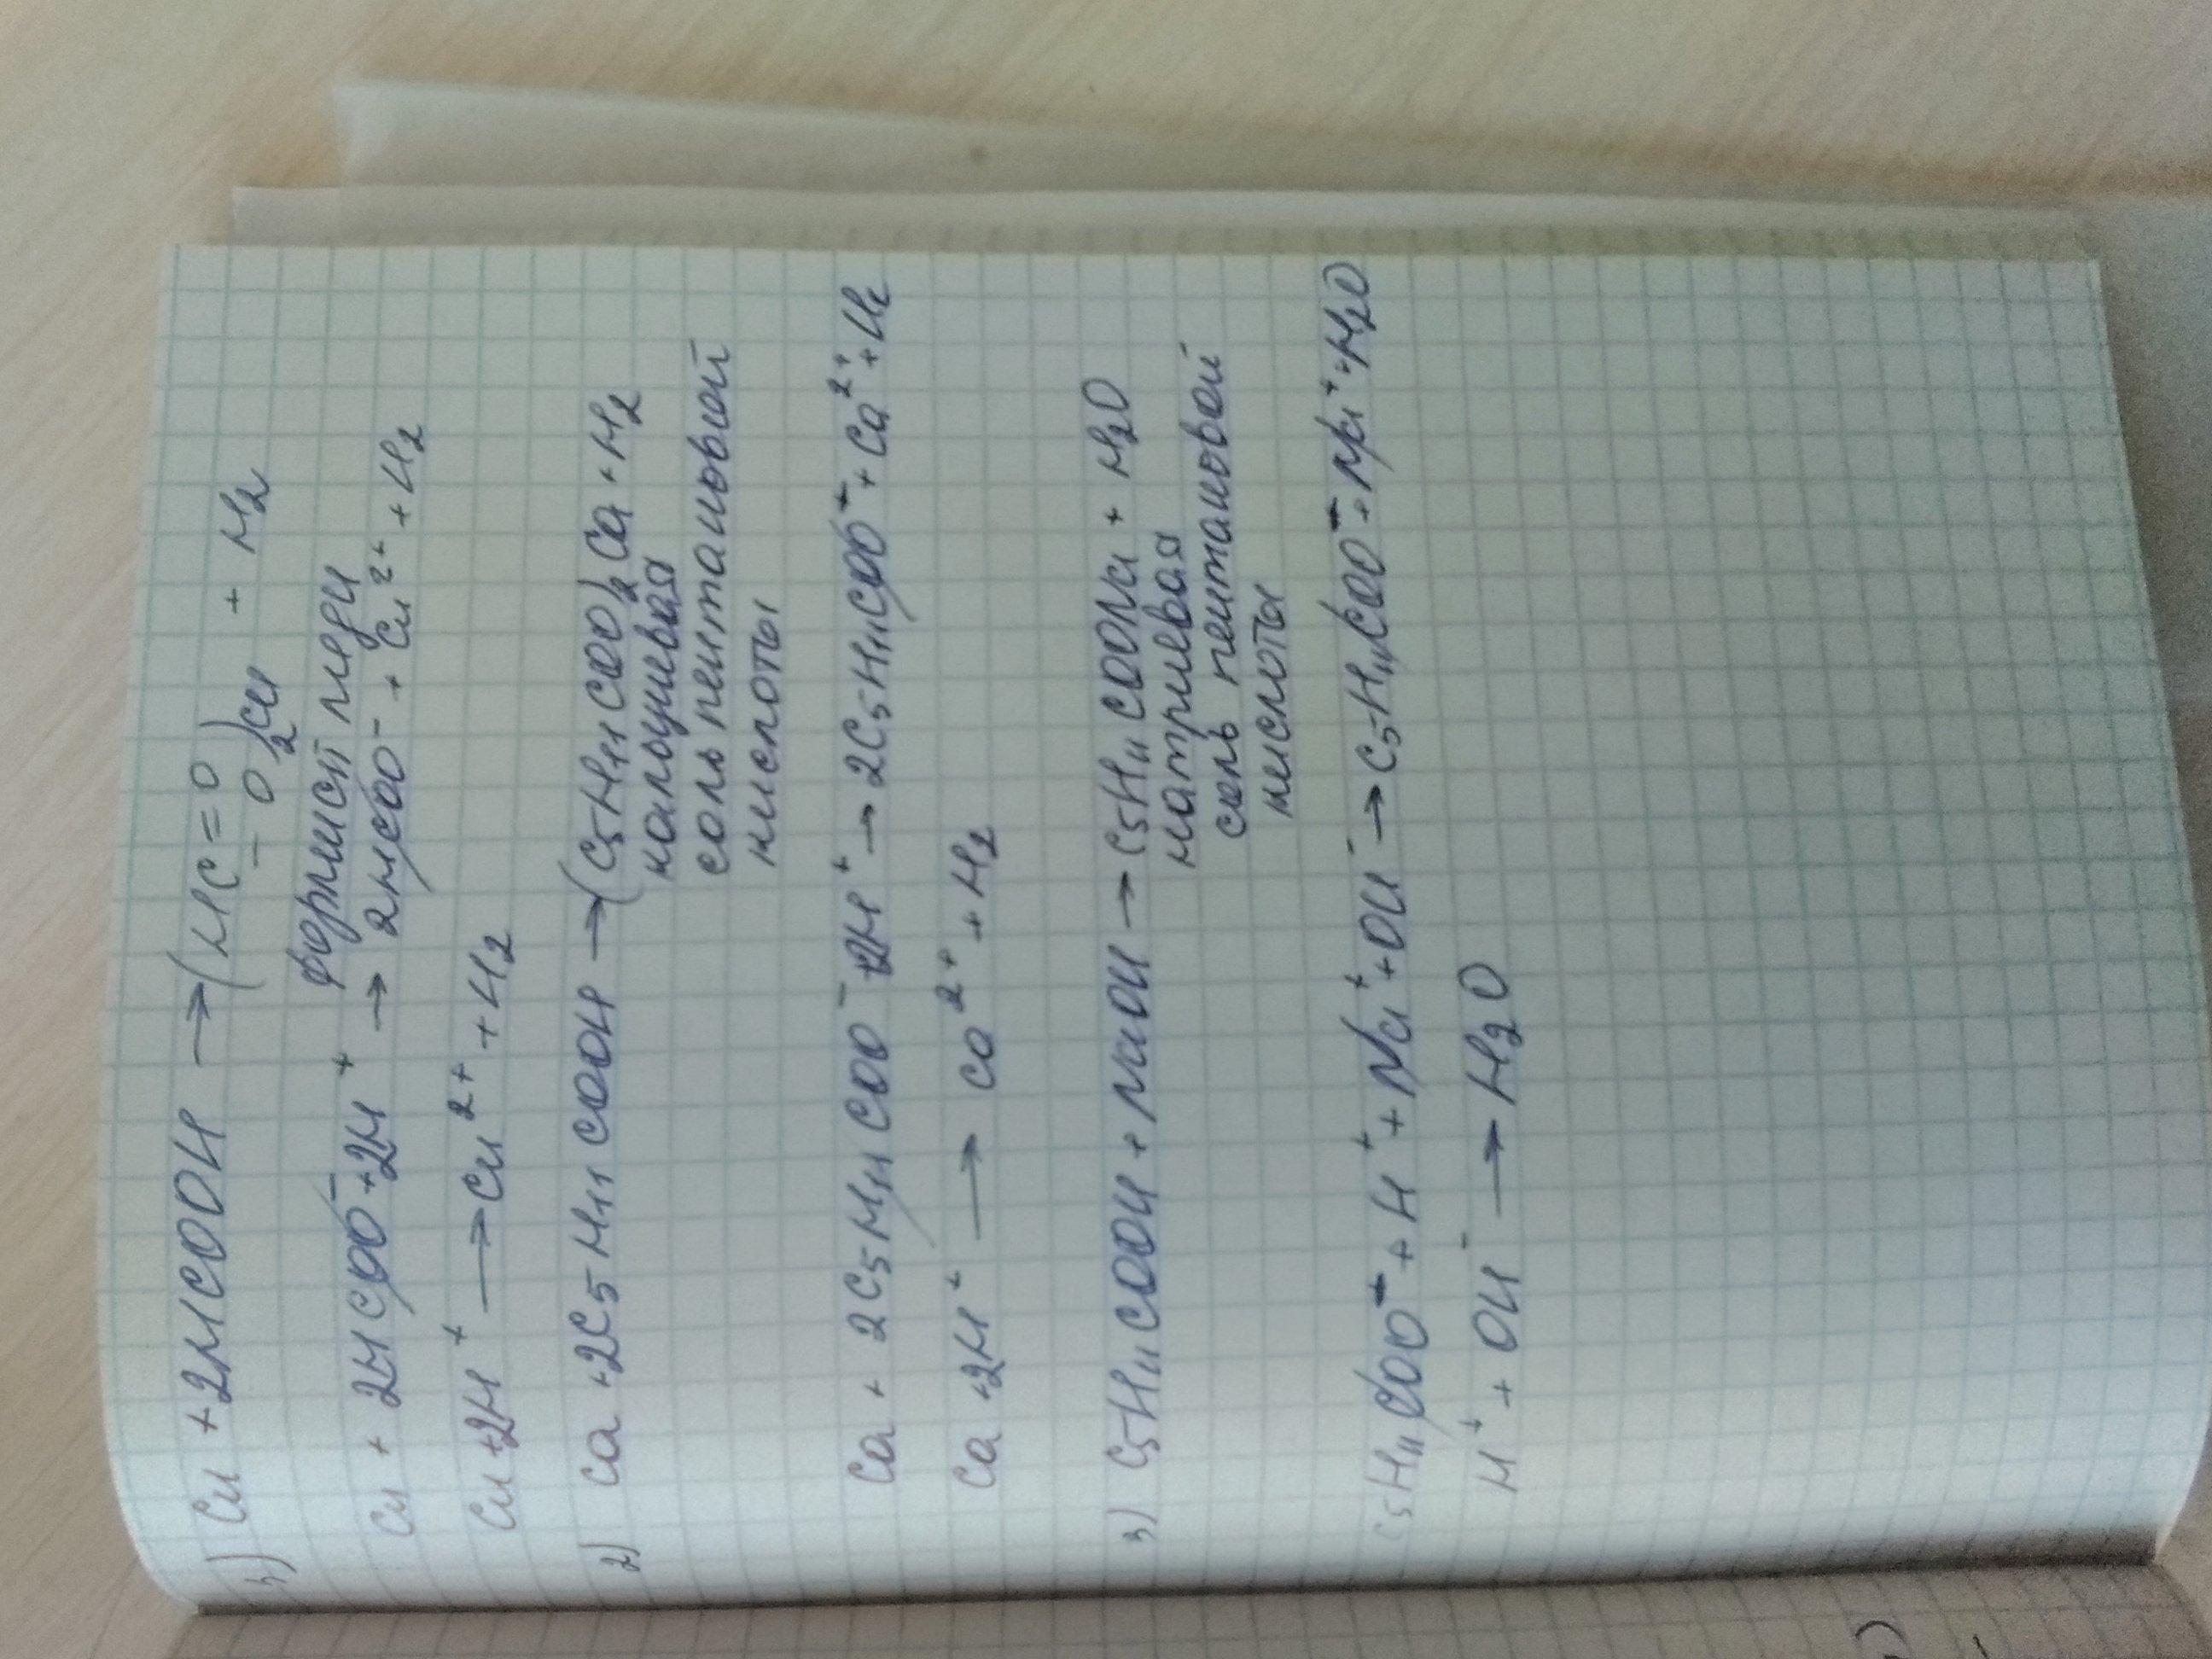 1) Cu + 2HCOOH → (HC = O
- O)₂Cu + H₂
формиат меди
Cu + 2HCOO⁻ + 2H⁺ → 2HCOO⁻ + Cu²⁺ + H₂
Cu + 2H⁺ → Cu²⁺ + H₂
2) Ca + 2C₅H₁₁COOH → (C₅H₁₁COO)₂Ca + H₂
кальциевая
соль пентановой
кислоты
Ca + 2C₅H₁₁COO⁻ + 2H⁺ → 2C₅H₁₁COO⁻ + Ca²⁺ + H₂
Ca + 2H⁺ → Ca²⁺ + H₂
3) C₅H₁₁COOH + NaOH → C₅H₁₁COONa + H₂O
натриевая
соль пентановой
кислоты
C₅H₁₁COO⁻ + H⁺ + Na⁺ + OH⁻ → C₅H₁₁COO⁻ + Na⁺ + H₂O
H⁺ + OH⁻ → H₂O